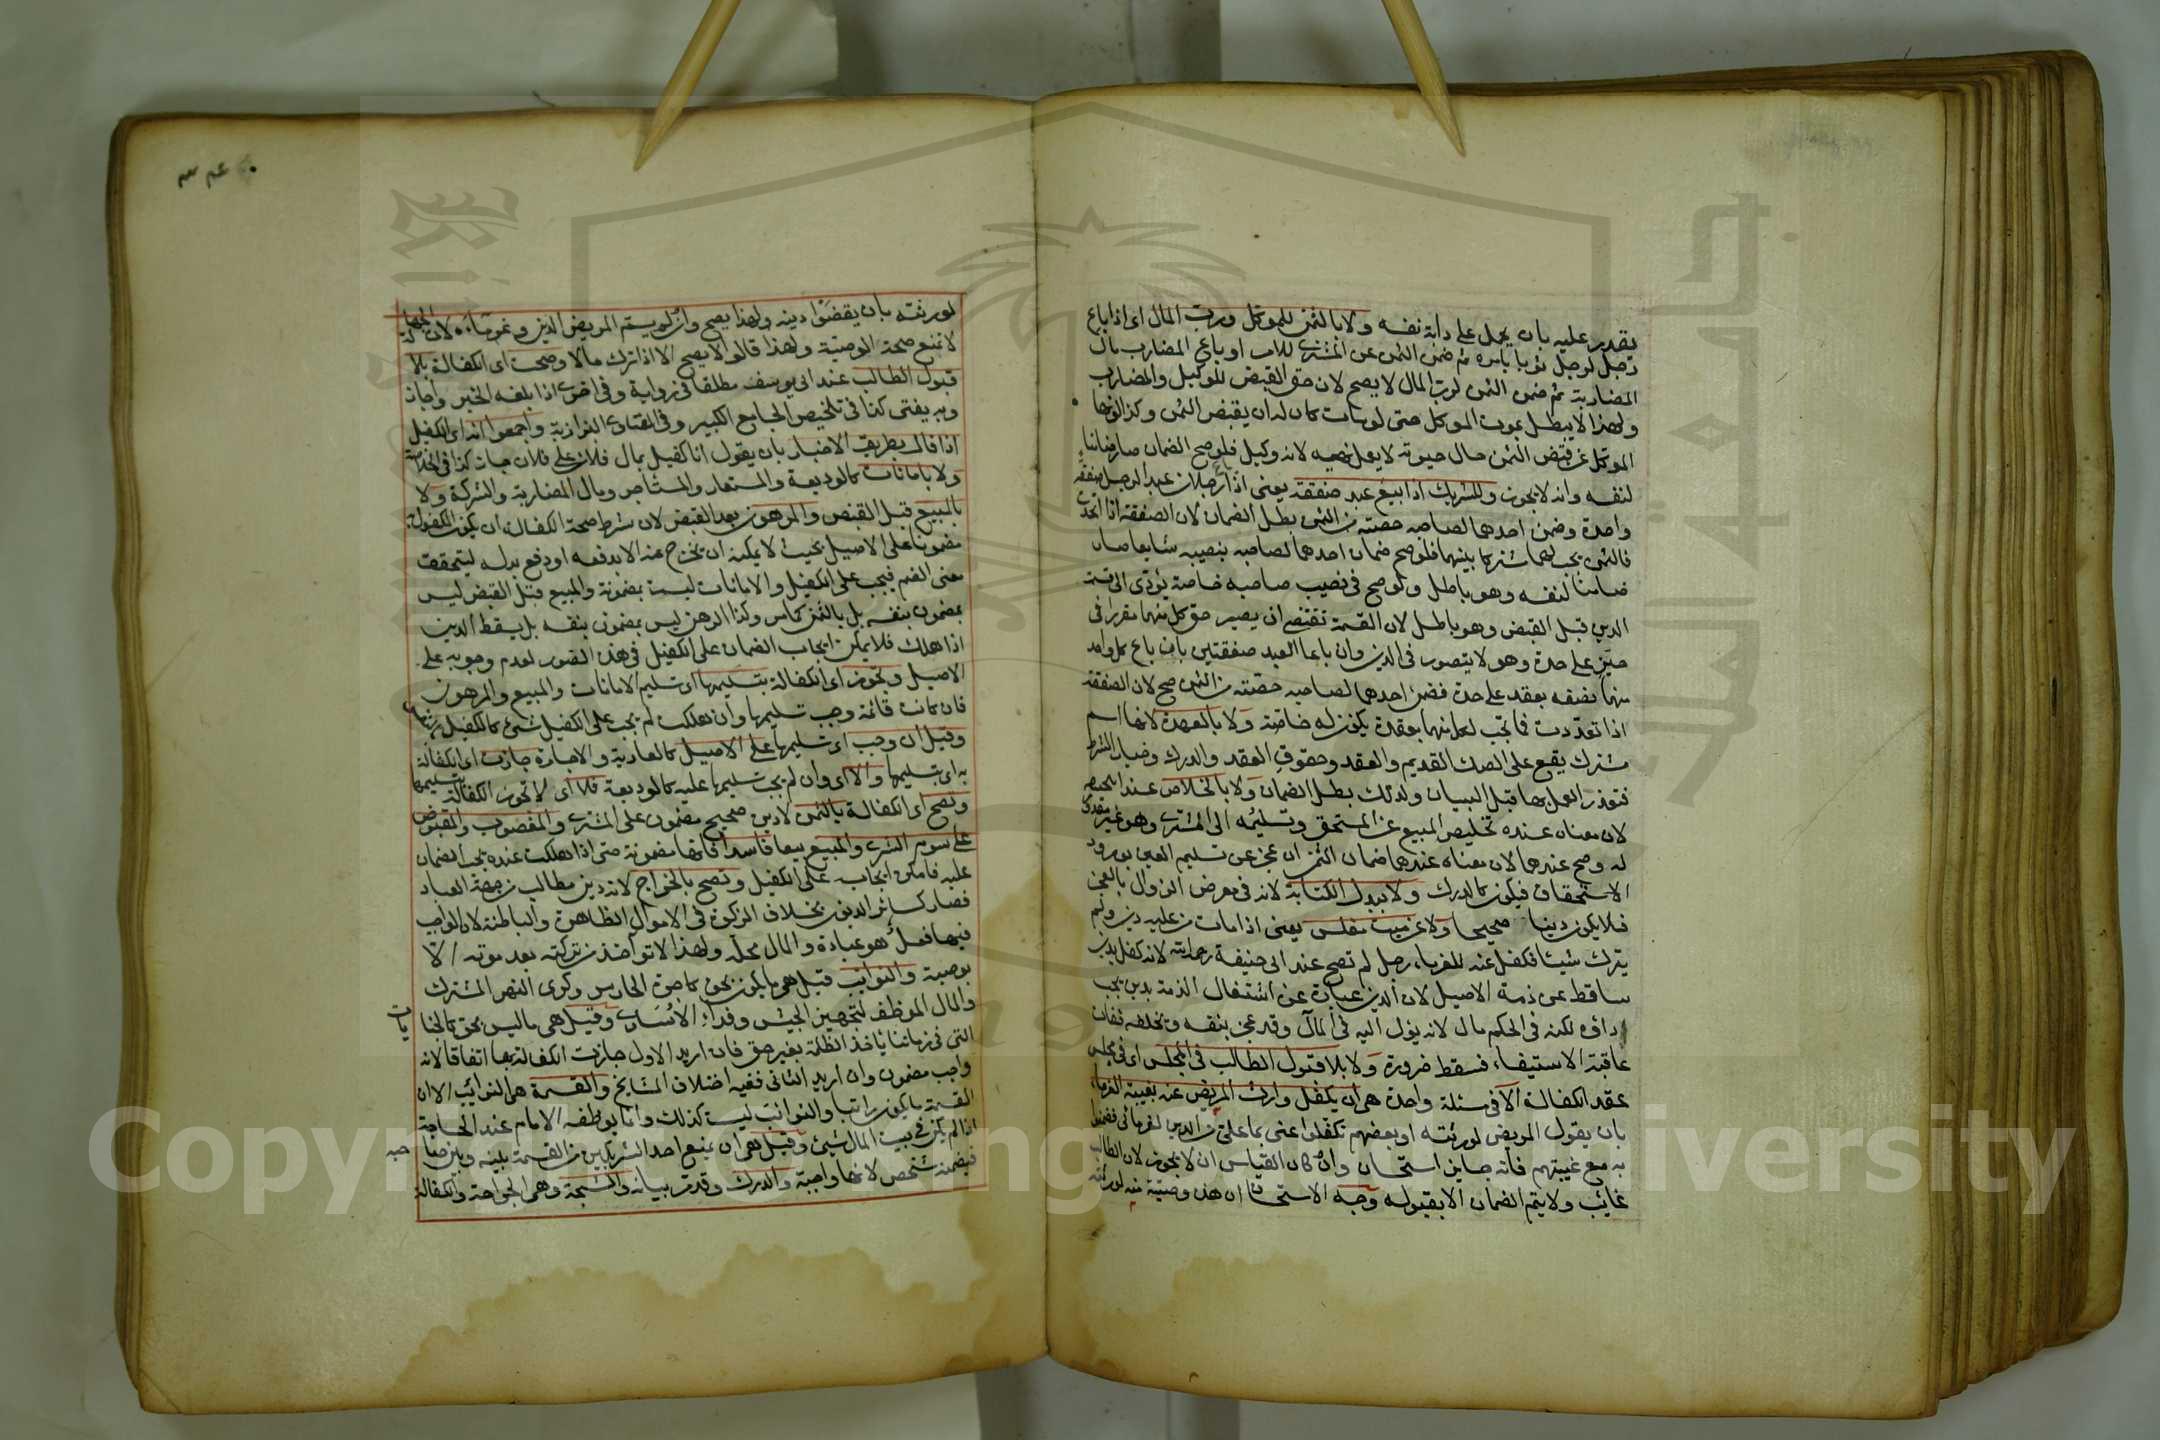 يقدر عليه بان يحمل على دابة نفسه ولا بالثمن للموكل ورب المال اى اذا باع
رجل لرجل ثوبا بامره ثم ضمن الثمن عن المشترى للامر او باع المضارب مال
المضاربة ثم ضمن الثمن لرب المال لا يصح لان حق القبض للوكيل والمضارب
ولهذا لا يبطل بموت الموكل حتى لو مات كان له ان يقبض الثمن وكذا لو نهاه
الموكل عن قبض الثمن حال حيوته لا يعمل نهيه لانه وكيل فلو صح الضمان صار ضامنا
لنفسه وانه لا يجوز وللشريك اذا بيع عبد صفقة يعنى اذا رجلان عبدا لرجل صفقة
واحدة وضمن احدهما لصاحبه حصته من الثمن بطل الضمان لان الصفقة اذا اتحدت
فالثمن يجب لهما مشتركا بينهما فلو صح ضمان احدهما لصاحبه بنصيبه شايعا صار
ضامنا لنفسه وهو باطل ولو صح فى نصيب صاحبه خاصة يؤدى الى قسمة
الدين قبل القبض وهو باطل لان القسمة تقتضى ان يصير حق كل منهما مقررا فى
حيز على حدة وهو لا يتصور فى الدين وان باعا العبد صفقتين بان باع كل واحد
منهما نصفه بعقد على حدة فضمن احدهما لصاحبه حصته من الثمن صح لان الصفقة
اذا تعددت فما يجب لكل منهما بعقده يكون له خاصة ولا بالعهدة لانها اسم
مشترك يقع على الصك القديم والعقد وحقوق العقد والدرك وخيار الشرط
فتعذر العمل بها قبل البيان ولذلك بطل الضمان ولا بالخلاص عند ابى حنيفة
لان معناه عنده تخليص المبيع عن المستحق وتسليمه الى المشترى وهو غير مقدور
له وصح عندهما لان معناه عندهما ضمان الثمن ان عجز عن تسليم العين بورود
الاستحقاق فيكون كالدرك ولا ببدل الكتابة لانه فى معرض الزوال بالعجز
فلا يكون دينا صحيحا ولا عن ميت مفلس يعنى اذا مات من عليه دين ولم
يترك شيئا فكفل عنه للغرماء رجل لم تصح عند ابى حنيفة رحمه الله لانه كفل بدين
ساقط عن ذمة الاصيل لان الدين عبارة عن اشتغال الذمة بدين يجب
اداؤه لكنه فى الحكم مال لانه يؤل اليه فى المآل وقد عجز بنفسه وبخلفه ففات
عاقبة الاستيفاء فسقط ضرورة ولا بلا قبول الطالب فى المجلس اى فى مجلس
عقد الكفالة الا فى مسئلة واحدة هى ان يكفل وارث المريض عنه بغيبة الغرماء
بان يقول المريض لورثته او بعضهم تكفلوا عنى بما على من الدين لغرمائى فضمنوا
به مع غيبتهم فانه جايز استحسان وان كان القياس ان لا يجوز لان الطالب
غايب ولا يتم الضمان الا بقبوله وجه الاستحسان ان هذه وصية منه لورثته
لورثته بان يقضوا دينه ولهذا يصح وان لم يسم المريض الدين وغرماءه لان الجهالة
لا تمنع صحة الوصية ولهذا قالوا لا يصح الا اذا ترك مالا وصحت اى الكفالة بلا
قبول الطالب عند ابى يوسف مطلقا فى رواية وفى اخرى اذا بلغه الخبر واجاز
وبه يفتى كذا فى تلخيص الجامع الكبير وفى الفتاوى البزازية واجمعوا انه اى الكفيل
اذا قال بطريق الاخبار بان يقول انا كفيل بمال فلان على فلان جاز كذا فى الخلاصة
ولا بامانات كالوديعة والمستعار والمستأجر ومال المضاربة والشركة ولا
بالمبيع قبل القبض والمرهون بعد القبض لان شرط صحة الكفالة ان يكون المكفول به
مضمونا على الاصيل بحيث لا يمكنه ان يخرج عنه الا بدفعه او دفع بدله ليتحقق
معنى الضم فيجب على الكفيل والامانات ليست بمضمونة والمبيع قبل القبض ليس
بمضمون بنفسه بل بالثمن كما مر وكذا الرهن ليس بمضمون بنفسه بل يسقط الدين
اذا هلك فلا يمكن ايجاب الضمان على الكفيل فى هذه الصور لعدم وجوبه على
الاصيل ويجوز اى الكفالة بتسليمها اى تسليم الامانات والمبيع والمرهون
فان كانت قائمة وجب تسليمها وان هلكت لم يجب على الكفيل شئ كالكفيل
وقيل ان وجب اى تسليمها على الاصيل كالعارية والاجارة جازت اى الكفالة
به اى بتسليمها والا اى وان لم يجب تسليمها عليه كالوديعة فلا اى لا تجوز الكفالة بتسليمها
وتصح اى الكفالة بالثمن لانه دين صحيح مضمون على المشترى والمغصوب والمقبوض
على سوم الشرى والمبيع بيعا فاسدا فانها مضمونة حتى اذا هلكت عنده يجب الضمان
عليه فامكن ايجابه على الكفيل وتصح بالخراج لانه دين مطالب من جهة العباد
فصار كسائر الديون بخلاف الزكوة فى الاموال الظاهرة والباطنة لان الواجب
فيها فعل هو عبادة والمال محله ولهذا لا تؤخذ من تركته بعد موته الا
بوصية والنوائب قيل هى ما يكون بحق كاجرة الحارس وكرى النهر المشترك
والمال الموظف لتجهيز الجيش وفداء الاسارى وقيل هى ما ليس بحق كالجنايات
التى فى زماننا يأخذ الظلمة بغير حق فان اريد الاول جازت الكفالة بها اتفاقا لانه
واجب مضمون وان اريد الثانى ففيه اختلاف المشايخ والقسمة هى النوائب الا ان
القسمة ما يكون راتبا والنوائب ليست كذلك وانما يوظفه الامام عند الحاجة
اذا لم يكن فى بيت المال شئ وقيل هى ان يمنع احد الشريكين من القسمة بينه وبين صاحبه
فيضمنه شخص لانها واجبة والدرك وقد مر بيانه والشجة وهى الجراحة والكفالة
Copyright © King Saud University